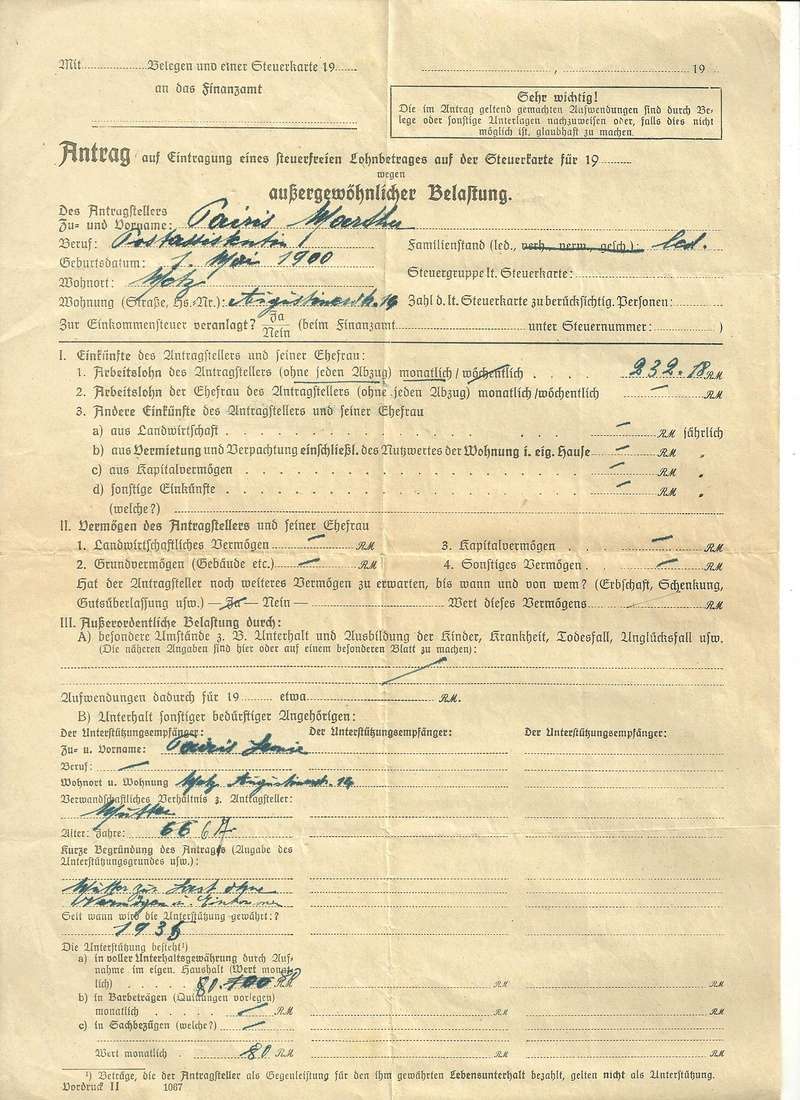 Mit.............Belegen und einer Steuerkarte 19......
............................................., ........................ 19......
an das Finanzamt
Sehr wichtig!
Die im Antrag geltend gemachten Aufwendungen sind durch Be-
lege oder sonstige Unterlagen nachzuweisen oder, falls dies nicht
möglich ist, glaubhaft zu machen.
Antrag auf Eintragung eines steuerfreien Lohnbetrages auf der Steuerkarte für 19.......
wegen
außergewöhnlicher Belastung.
Des Antragstellers
Zu- und Vorname: Pairis Martha
Beruf: Postassistentin
Familienstand (led., verh., verw., gesch.): led.
Geburtsdatum: 1. Mai 1900
Steuergruppe lt. Steuerkarte:
Wohnort: Metz
Wohnung (Straße, Hs.-Nr.): Augustinerstr. 16
Zahl d. lt. Steuerkarte zu berücksichtig. Personen:
Zur Einkommensteuer veranlagt? Ja/Nein (beim Finanzamt................ unter Steuernummer:................)
I. Einkünfte des Antragstellers und seiner Ehefrau:
1. Arbeitslohn des Antragstellers (ohne jeden Abzug) monatlich/wöchentlich . . . . 232.18 RM
2. Arbeitslohn der Ehefrau des Antragstellers (ohne jeden Abzug) monatlich/wöchentlich — RM
3. Andere Einkünfte des Antragstellers und seiner Ehefrau
a) aus Landwirtschaft . . . . . — RM jährlich
b) aus Vermietung und Verpachtung einschließl. des Nutzwertes der Wohnung i. eig. Hause — RM "
c) aus Kapitalvermögen . . . . . — RM "
d) sonstige Einkünfte . . . . . — RM "
(welche?)
II. Vermögen des Antragstellers und seiner Ehefrau
1. Landwirtschaftliches Vermögen — RM
3. Kapitalvermögen . . . — RM
2. Grundvermögen (Gebäude etc.) — RM
4. Sonstiges Vermögen . . — RM
Hat der Antragsteller noch weiteres Vermögen zu erwarten, bis wann und von wem? (Erbschaft, Schenkung,
Gutsüberlassung usw.) — Ja — Nein — Wert dieses Vermögens RM
III. Außerordentliche Belastung durch:
A) besondere Umstände z. B. Unterhalt und Ausbildung der Kinder, Krankheit, Todesfall, Unglücksfall usw.
(Die näheren Angaben sind hier oder auf einem besonderen Blatt zu machen):
Aufwendungen dadurch für 19........ etwa................RM.
B) Unterhalt sonstiger bedürftiger Angehörigen:
Der Unterstützungsempfänger:
Der Unterstützungsempfänger:
Der Unterstützungsempfänger:
Zu- u. Vorname: Pairis
Beruf: —
Wohnort u. Wohnung Metz Augustinerstr. 16
Verwandschaftliches Verhältnis z. Antragsteller:
Mutter
Alter. Jahre: 66
Kurze Begründung des Antrags (Angabe des
Unterstützungsgrundes usw.):
Mutter zur Last ohne
Vermögen u. Einkommen
Seit wann wird die Unterstützung gewährt:?
Die Unterstützung besteht¹)
a) in voller Unterhaltsgewährung durch Auf-
nahme im eigen. Haushalt (Wert monat-
lich) . . . . . 80. 100 RM
RM
RM
b) in Barbeträgen (Quittungen vorlegen)
monatlich . . . . — RM
RM
RM
c) in Sachbezügen (welche?) —
Wert monatlich . 80 RM
RM
RM
¹) Beträge, die der Antragsteller als Gegenleistung für den ihm gewährten Lebensunterhalt bezahlt, gelten nicht als Unterstützung.
Vordruck II 1067